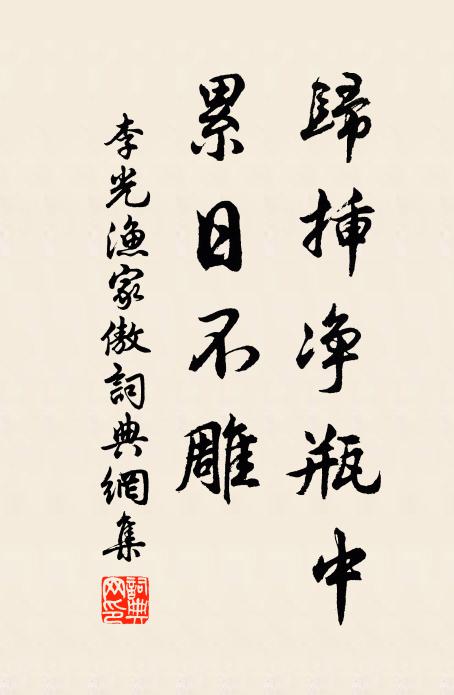 歸挿净瓶中
累日不雕
李光漁家傲詞典網集
詞典網印